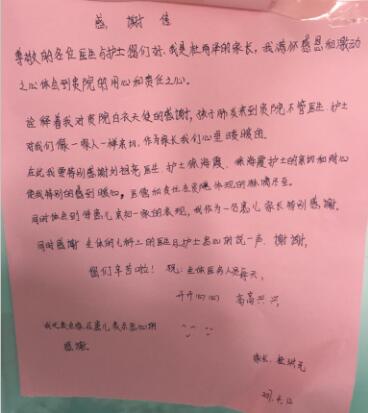 感谢信
尊敬的各位医生与护士们好：我是杜雨泽的家长，我满怀感恩和激动
之心体点到贵院的用心和责任之心。
诠释着我对贵院白衣天使的感谢，孩子肺炎来到贵院不管医生、护士
对我们像一家人一样亲切，作为家长我们心里暖暖的。
在此我要特别感谢刘祖亮医生 护士徐海霞、 护士的亲切和耐心
使我特别的感到暖心，
同时体点到待患儿亲如一家的表现，我作为一名患儿家长特别感谢。
同时感谢 全体的儿科二的医生及护士忠心的说一声 谢谢，
你们辛苦啦！祝：全体医务人员每天，
开开心心 高高兴兴
我代表全体在患儿表示忠心谢
感谢。
家长：杜洪亮